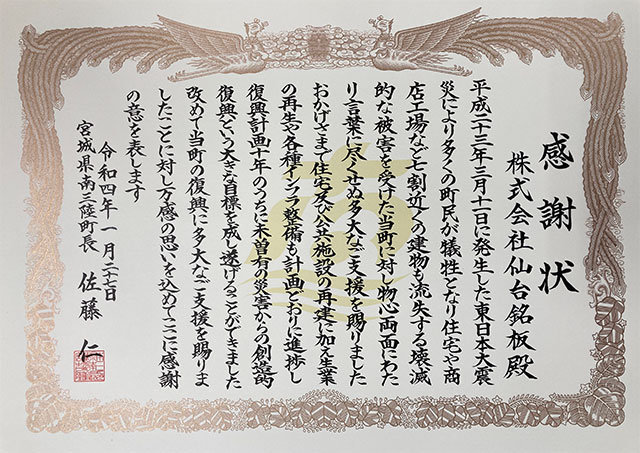 感謝状
株式会社仙台銘板殿
平成二十三年三月十一日に発生した東日本大震
災により多くの町民が犠牲となり住宅や商
店工場など七割近くの建物も流失する壊滅
的な被害を受けた当町に対し物心両面にわた
り言葉に尽くせぬ多大なご支援を賜りました
おかげさまで住宅及び公共施設の再建に加え産業
の再生や各種インフラ整備も計画どおりに進捗し
復興計画十年のうちに未曽有の災害からの創造的
復興という大きな目標を成し遂げることができました
改めて当町の復興に多大なご支援を賜りま
したことに対し万感の思いを込めてここに感謝
の意を表します
令和四年一月二十七日
宮城県南三陸町長 佐藤 仁